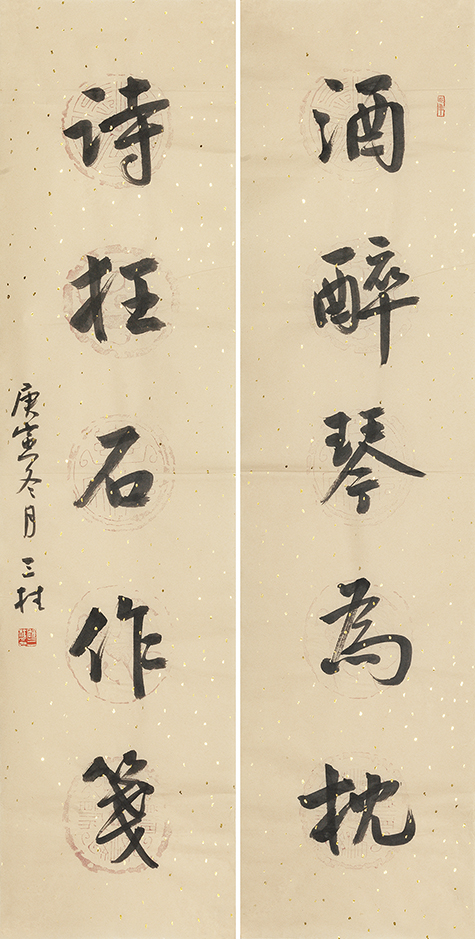 酒醉琴為枕
诗狂石作笺
庚寅冬月 三柱